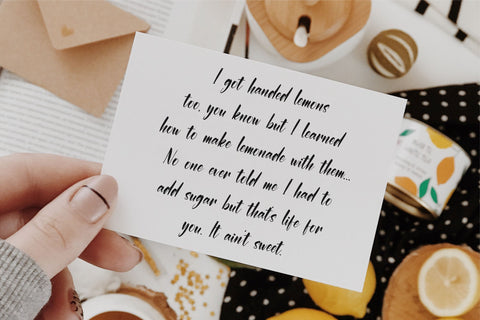 I got handed lemons
too, you know but I learned
how to make lemonade with them...
No one ever told me I had to
add sugar but that's life for
you. It ain't sweet.